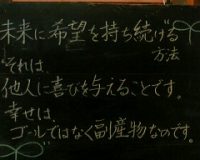 未来に希望を持ち続ける
方法
それは、
他人に喜びを与えることです。
幸せは、
ゴールではなく副産物なのです。